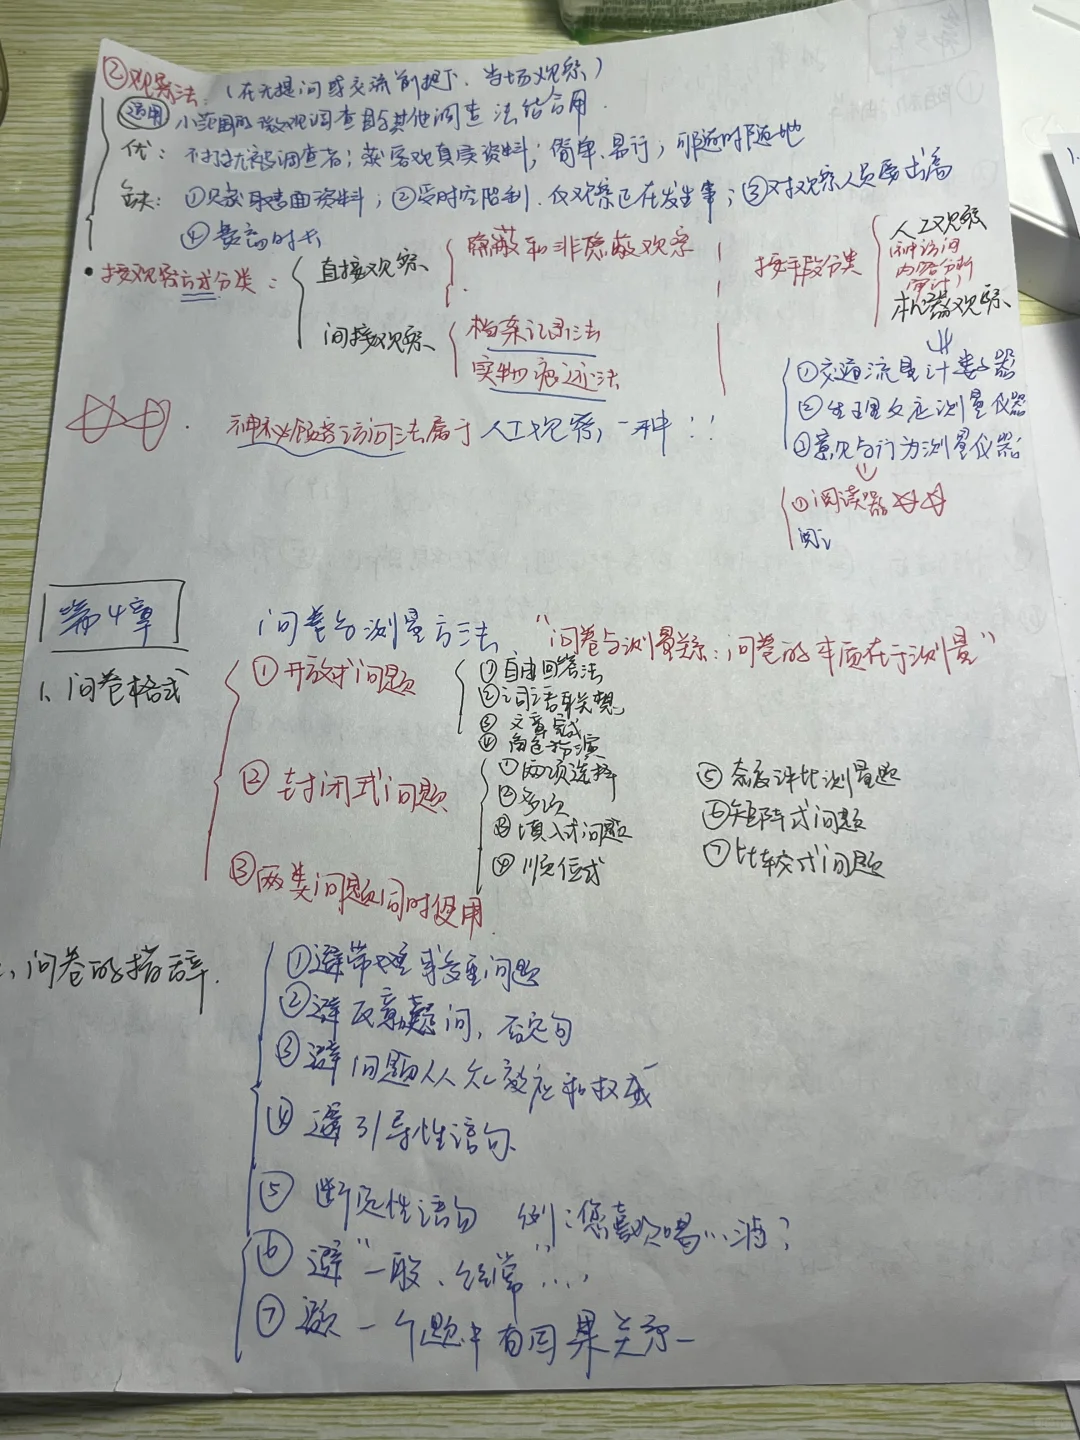 ②观察法：（在无提问或交流前提下，当场观察）
适用 小范围的微观调查且与其他调查法结合用.
优：不打扰被调查者；获客观真实资料；简单、易行；可随时随地
缺：①只获取表面资料；②受时空限制，仅观察正在发生事；③对观察人员要求高
④ 时长
• 按观察方式分类：
直接观察
隐蔽和非隐蔽观察
间接观察
档案记录法
实物痕迹法
按手段分类
人工观察
（神访问
内容分析
审计）
机器观察
①交通流量计数器
②生理反应测量仪器
③意见与行为测量仪器
①阅读器
阅讠
神秘顾客访问法属于人工观察，一种！！
第4章
问卷与测量方法
“问卷与测量关系：问卷的本质在于测量”
1、问卷格式
①开放式问题
①自由回答法
②词语联想
③文章完成
④角色扮演
②封闭式问题
①两项选择
②多次
③填入式问题
④顺位式
⑤态度评比测量题
⑥矩阵式问题
⑦比较式问题
③两类问题同时使用.
、问卷的措辞.
①避带 或多重问题
②避反意疑问，否定句
③避问题从众效应和权威
④避引导性语句
⑤断定性语句 例：您喜欢喝…酒？
⑥避“一般、经常”…
⑦ 一个题中有因果关系